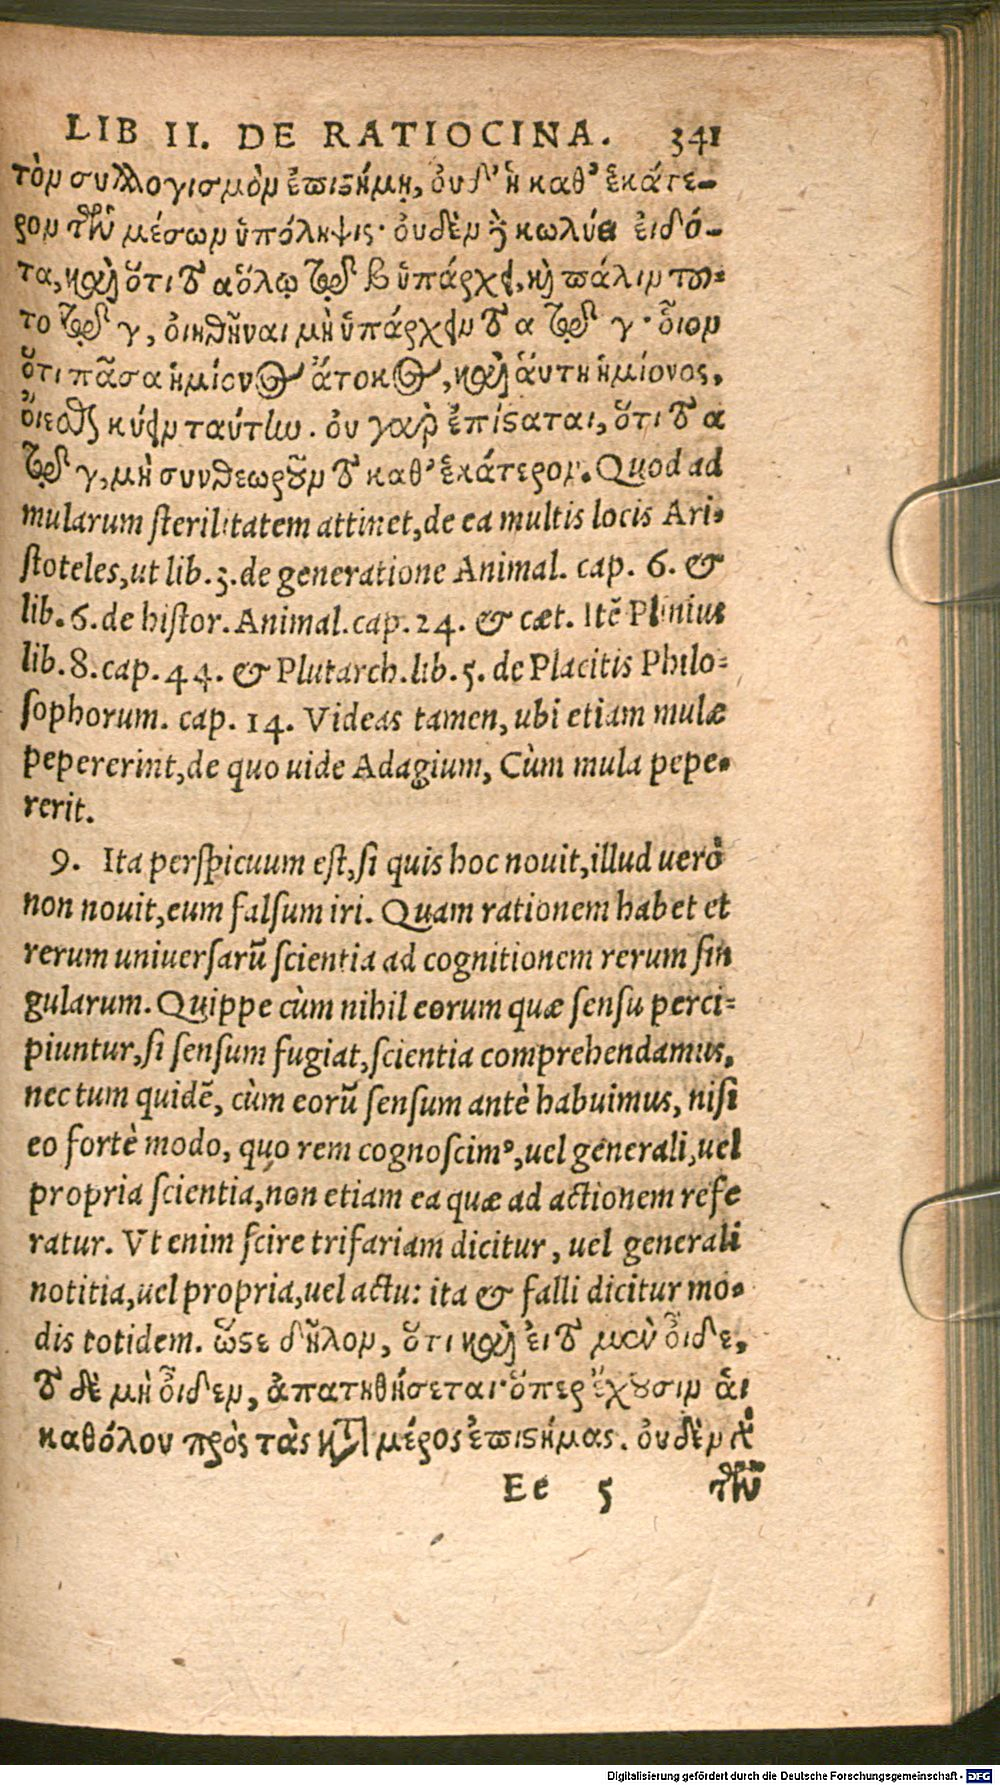 LIB II. DE RATIOCINA. 341
τὸν συλλογισμὸν ἐπιστήμῃ, ουδ' ἡ καθ' ἑκάτε-
ρον τῶν μέσων ὑπόληψις· ὀυδὲν ἢ κωλύει ἐιδό-
τα, καὶ ὅτι τὸ α ὅλῳ τῷ β ὑπάρχει, καὶ πάλιν τοῦ-
το τῷ γ, ὀιηθῆναι μὴ ὑπάρχειν τὸ α τῷ γ· ὅιον
ὅτι πᾶσα ἡμίονος ἄτοκος, καὶ ἅυτη ἡμίονος,
ὄιεσθαι κύειν ταύτην. ὀυ γαρ ἐπίσταται, ὅτι τὸ α
τῷ γ, μὴ συνθεωροῦν τὸ καθ' ἑκάτερον. Quod ad
mularum sterilitatem attinet, de ea multis locis Ari-
stoteles, ut lib. 3. de generatione Animal. cap. 6. &
lib. 6. de histor. Animal. cap. 24. & cæt. Itē Plinius
lib. 8. cap. 44. & Plutarch. lib. 5. de Placitis Philo-
sophorum. cap. 14. Videas tamen, ubi etiam mulæ
pepererint, de quo uide Adagium, Cùm mula pepe-
rerit.
9. Ita perspicuum est, si quis hoc nouit, illud uerò
non nouit, eum falsum iri. Quam rationem habet et
rerum uniuersarū scientia ad cognitionem rerum sin
gularum. Quippe cùm nihil eorum quæ sensu perci-
piuntur, si sensum fugiat, scientia comprehendamus,
nec tum quidē, cùm eorū sensum antè habuimus, nisi
eo fortè modo, quo rem cognoscimꝰ, uel generali, uel
propria scientia, non etiam ea quæ ad actionem refe
ratur. Vt enim scire trifariam dicitur, uel generali
notitia, uel propria, uel actu: ita & falli dicitur mo-
dis totidem. ὥστε δῆλον, ὅτι καὶ ἐι τὸ μὲν ὄιδε,
τὸ δὲ μὴ ὄιδεν, ἀπατηθήσεται· ὅπερ ἔχουσιν ἁι
καθόλου πρὸς τὰς κατὰ μέρος ἐπιστήμας. ὀυδὲν γὰρ
Ee 5 τῶν
Digitalisierung gefördert durch die Deutsche Forschungsgemeinschaft - DFG